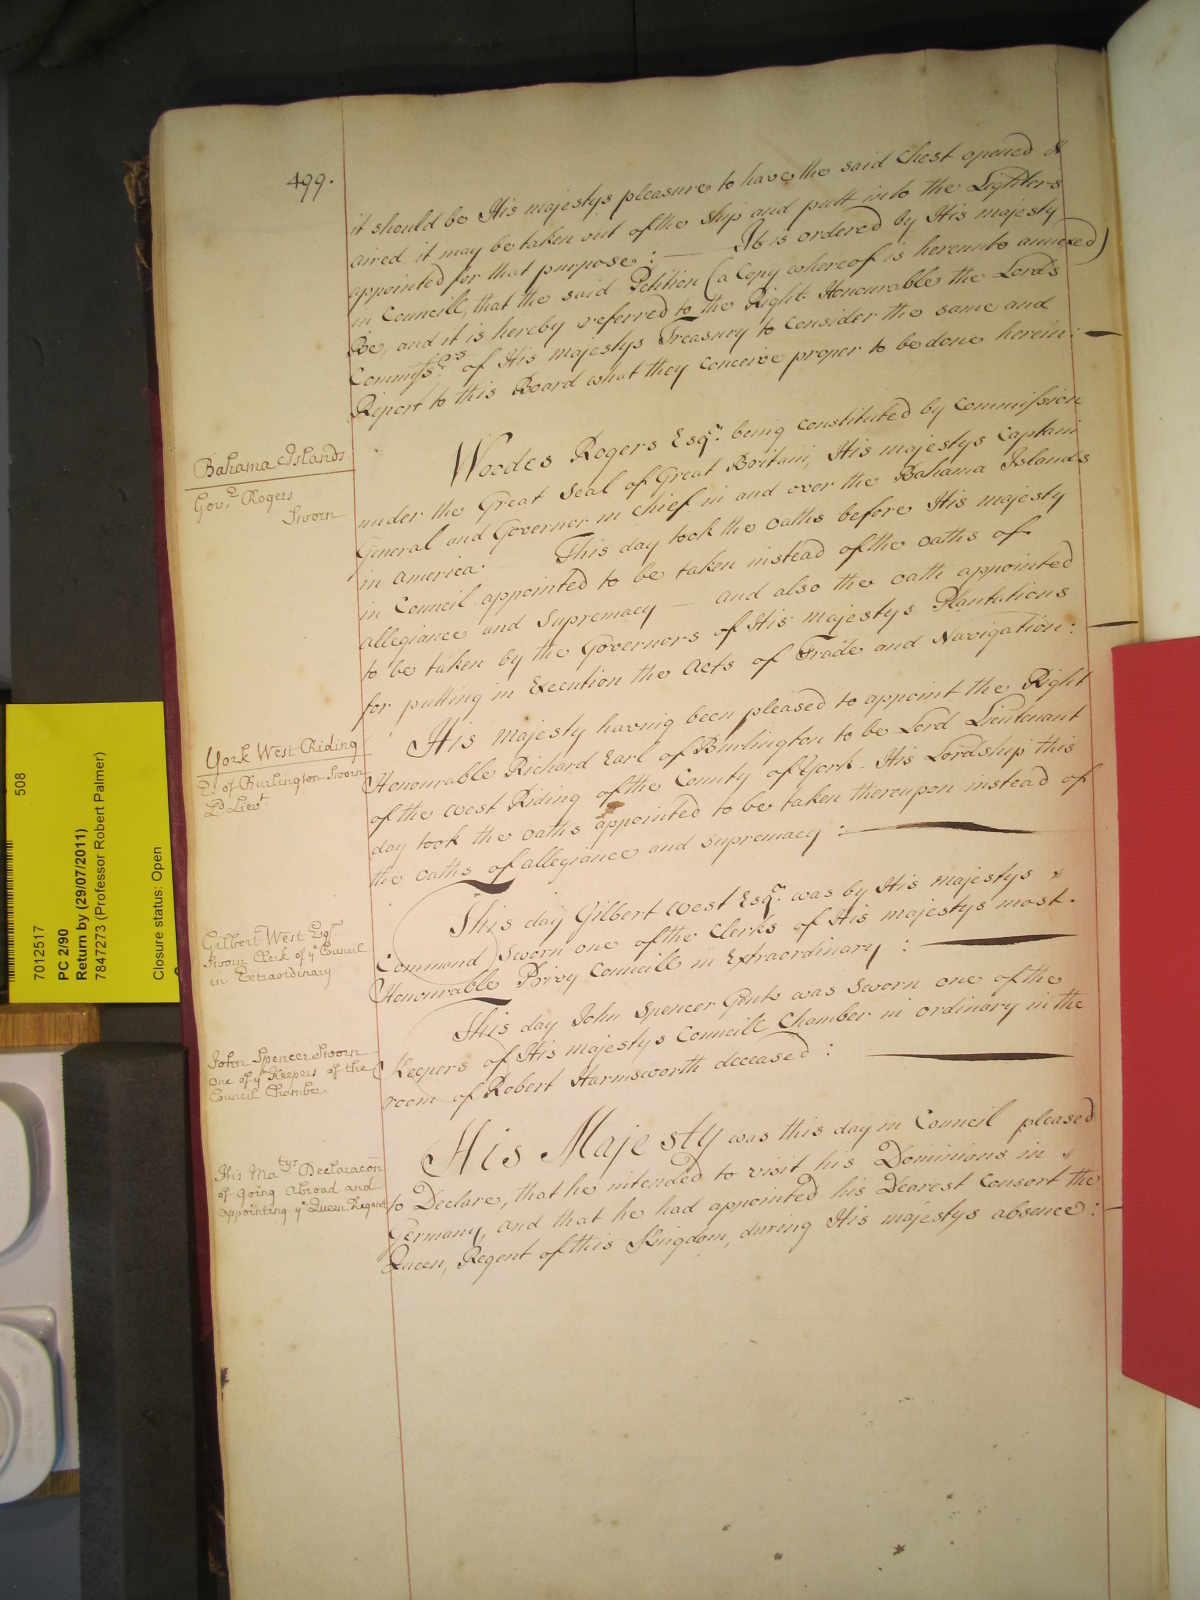 499.
it should be His majestys pleasure to have the said Chest opened &
aired it may be taken out of the ship and putt into the Lighters
appointed for that purpose: — It is ordered by His majesty
in Councill, that the said Petition (a Copy whereof is hereunto annexed)
Be, and it is hereby referred to the Right Honourable the Lords
Commissrs. of His majestys Treasury to Consider the same and
Report to this Board what they Conceive proper to be done herein: —
Bahama Islands
Govr. Rogers
Sworn
Woodes Rogers Esqr. being constituted by Commission
under the Great Seal of Great Britain, His majestys Captain
General and Governor in Chief in and over the Bahama Islands
in america. This day took the oaths before His majesty
in Council appointed to be taken instead of the oaths of
allegiance and Supremacy — and also the oath appointed
to be taken by the Governors of His majestys Plantations
for putting in Execution the Acts of Trade and Navigation: —
York West Riding
E. of Burlington Sworn
Ld. Lievt.
His majesty having been pleased to appoint the Right
Honourable Richard Earl of Burlington to be Lord Lieutenant
of the West Riding of the County of York. His Lordship this
day took the oaths appointed to be taken thereupon instead of
the oaths of allegiance and supremacy: —
Gilbert West Esqr.
Sworn Clerk of ye. Council
in Extraordinary
This day Gilbert West Esqr. was by His majestys "
Command Sworn one of the Clerks of His majestys most.
Honourable Privy Councill in Extraordinary: —
John Spencer Sworn
one of ye. Keepers of the
Council Chamber
This day John Spencer Gent. was Sworn one of the
Keepers of His majestys Councill Chamber in ordinary in the
room of Robert Harmsworth deceased: —
His Matys. Declaracon
of Going abroad and
appointing ye. Queen Regent
His Majesty was this day in Council pleased
to Declare, that he intended to visit his Dominions in "
Germany, and that he had appointed his Dearest Consort the
Queen, Regent of this Kingdom, during His majestys absence: —
508
7012517
PC 2/90
Return by (29/07/2011)
7847273 (Professor Robert Palmer)
Closure status: Open